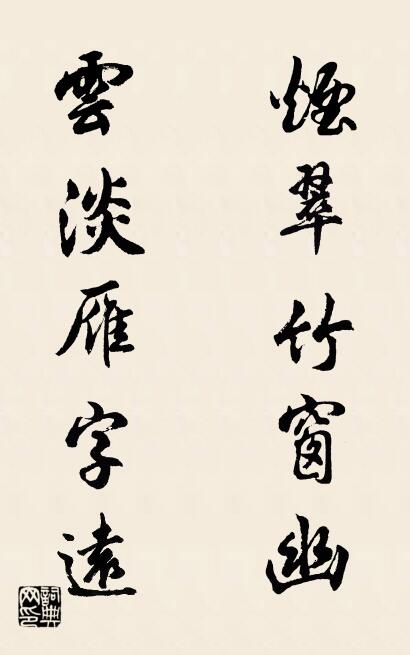 煙翠竹窗幽
雲淡雁字遠
詞典網印